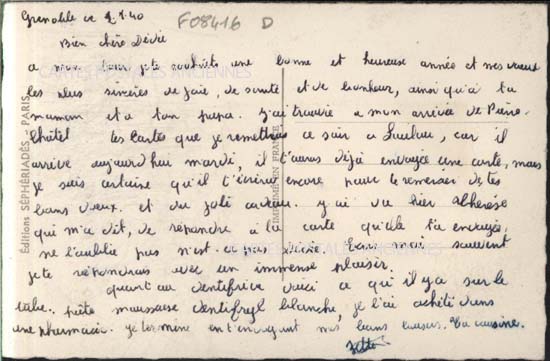 Grenoble ce 2.1.40
F08416 D
Bien chère Dédée
a mon tour je te souhaite une bonne et heureuse année et mes vœux
les plus sincères de joie, de santé et de bonheur, ainsi qu'à ta
maman et a ton papa. J'ai trouvé a mon arrivée de Pierre-
Châtel les cartes que je remettrais ce soir a Loulou, car il
arrive aujourd'hui mardi, il t'aurais déjà envoyée une carte, mais
je suis certaine qu'il t'écrira encore pour te remercier de tes
bons vœux. et du joli cadeau. j'ai vu hier Thérèse
qui m'a dit, de répondre à la carte qu'elle t'a envoyée,
ne l'oublie pas n'est-ce pas Dédée. Ecris moi souvent
je te répondrais avec un immense plaisir.
quant au dentifrice voici ce qu'il y a sur le
tube. pâte mousseuse dentifryl blanche, je l'ai acheté dans
une pharmacie. je termine en t'envoyant mes bons baisers. Ta cousine.
CARTES POSTALES ANCIENNES
Editions SÉPHÉRIADÈS - PARIS
IMPRIMÉ EN FRANCE